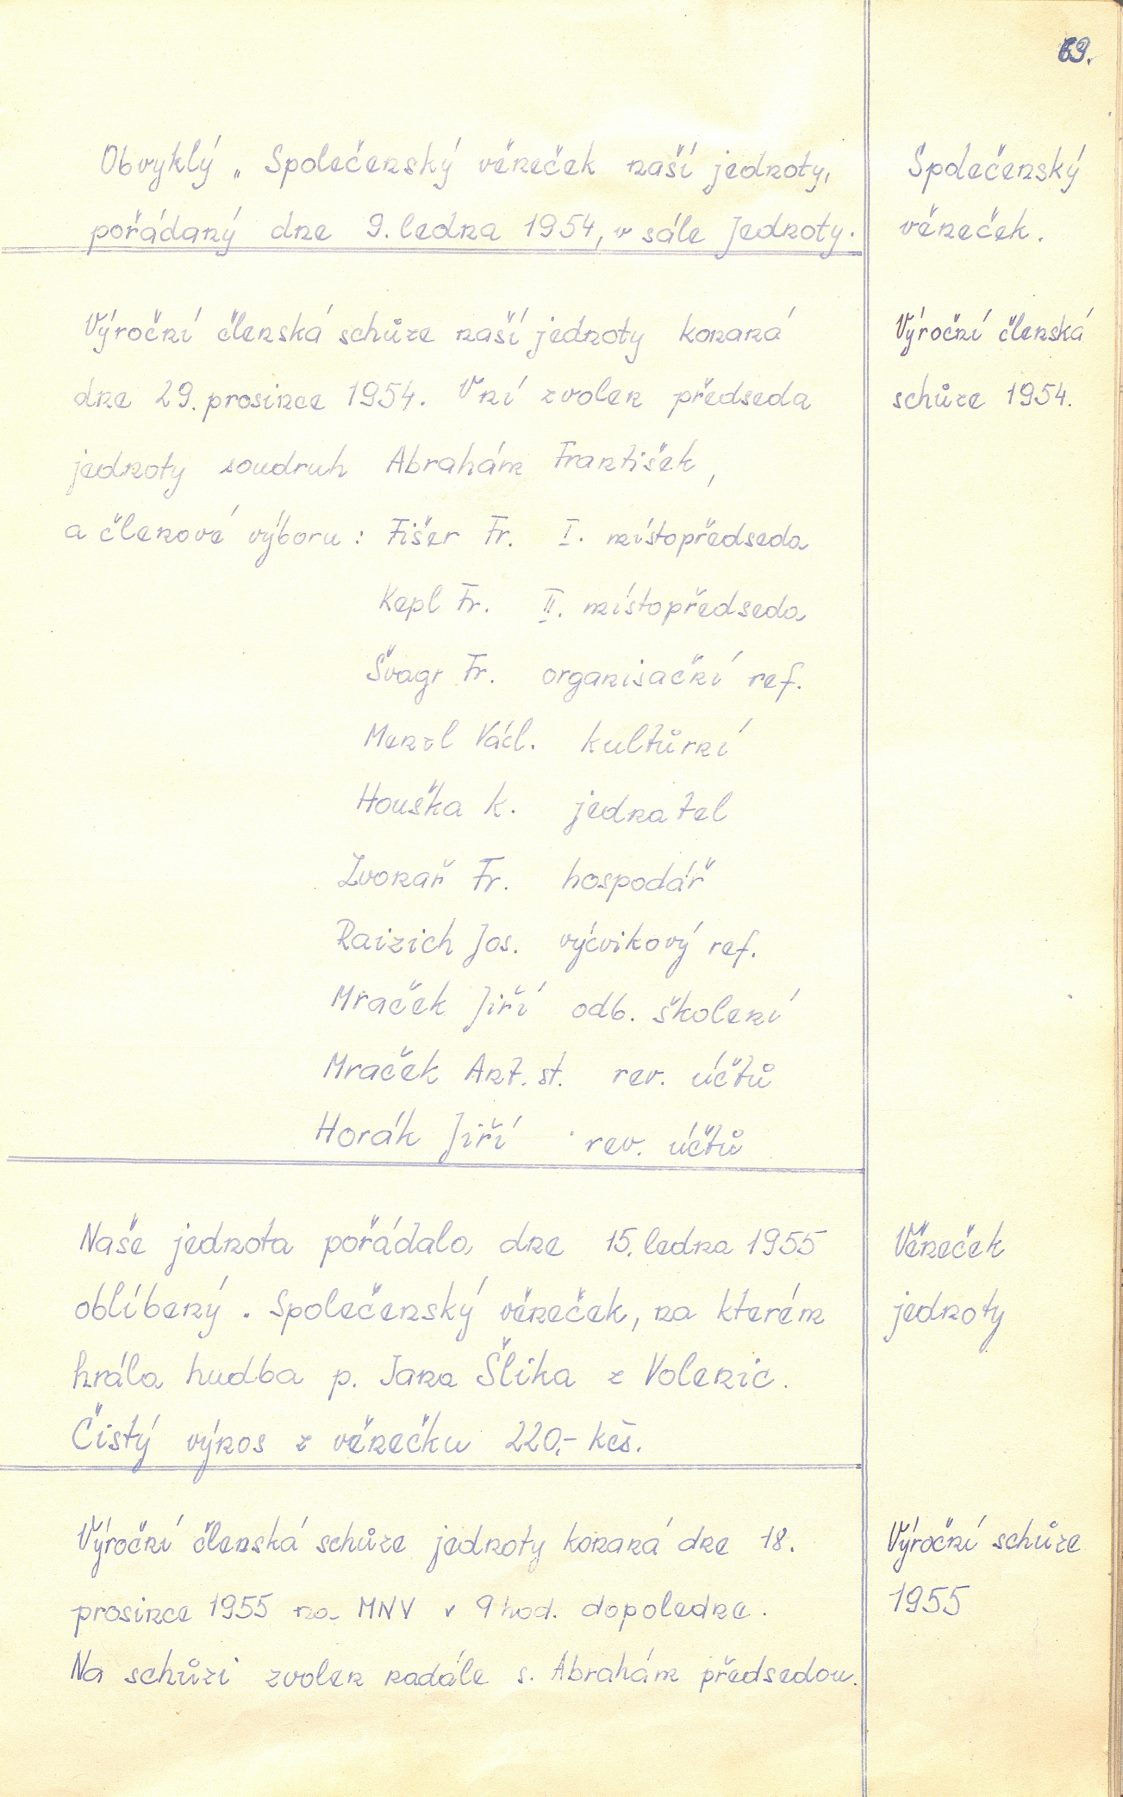 69.
Obvyklý „ Společenský věneček naší jednoty,
pořádaný dne 9. ledna 1954, v sále Jednoty.
Společenský
věneček.
Výroční členská schůze naší jednoty konaná
dne 29. prosince 1954. V ní zvolen předseda
jednoty soudruh Abrahám František,
a členové výboru : Fišer Fr. I. místopředseda
Kepl Fr. II. místopředseda
Švagr Fr. organisační ref.
Menzl Václ. kultůrní
Houška K. jednatel
Zvonař Fr. hospodář
Raizich Jos. výcvikový ref.
Mraček Jiří odb. školení
Mraček Ant. st. rev. účtů
Horák Jiří rev. účtů
Výroční členská
schůze 1954.
Naše jednota pořádala dne 15. ledna 1955
oblíbený . Společenský věneček, na kterém
hrála hudba p. Jana Šlika z Volenic.
Čistý výnos z věnečku 220,- kčs.
Věneček
jednoty
Výroční členská schůze jednoty konaná dne 18.
prosince 1955 na MNV v 9 hod. dopoledne.
Na schůzi zvolen nadále s. Abrahám předsedou.
Výroční schůze
1955